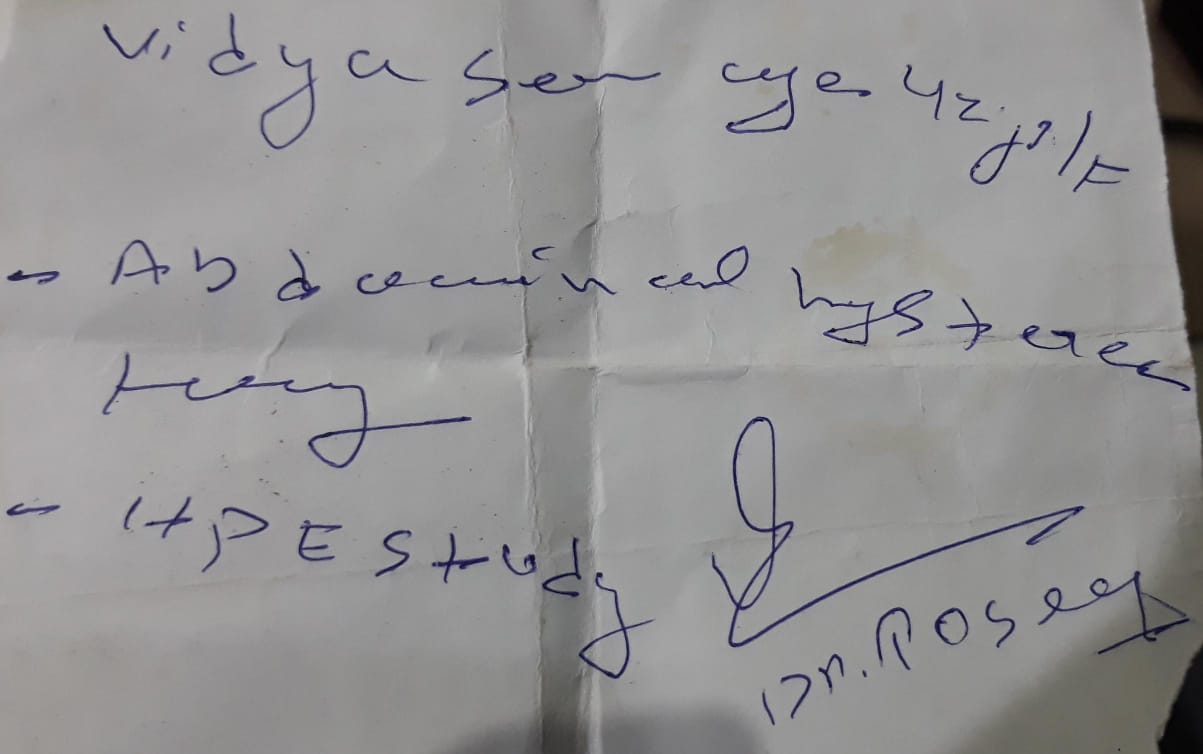 Vidya Sen age 42 yr/F
- Abdominal hysterec
tomy
- HPE Study
Dr. Rosey